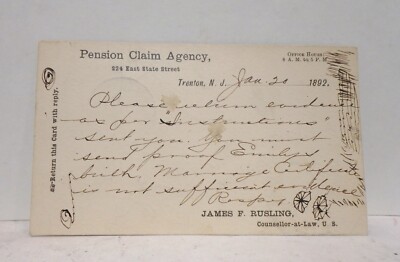 Pension Claim Agency,
224 East State Street
OFFICE HOURS:
8 A. M. to 5 P. M.
Trenton, N. J. Jan. 20 1892.
Return this Card with reply.
Please return eviden
as per "Instructions"
sent you. You must
send proof Emily's
birth, Marriage Certificate
is not sufficient evidence
Respy
JAMES F. RUSLING,
Counsellor-at-Law, U. S.